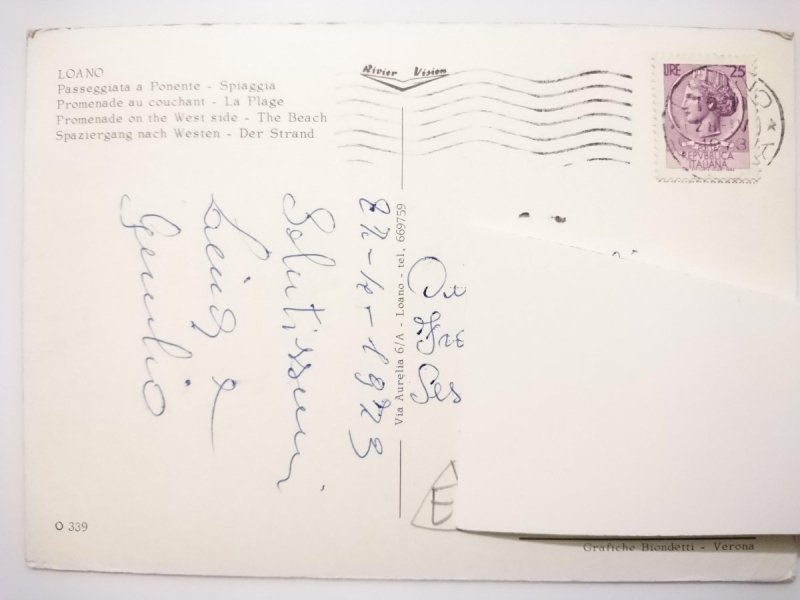 LOANO
Passeggiata a Ponente - Spiaggia
Promenade au couchant - La Plage
Promenade on the West side - The Beach
Spaziergang nach Westen - Der Strand
Rivier Vision
LIRE 25
REPVBBLICA
ITALIANA
1973
Salutissimi
e
Via Aurelia 6/A - Loano - tel. 669759
Fre
Ses
E
O 339
Grafiche Biondetti - Verona